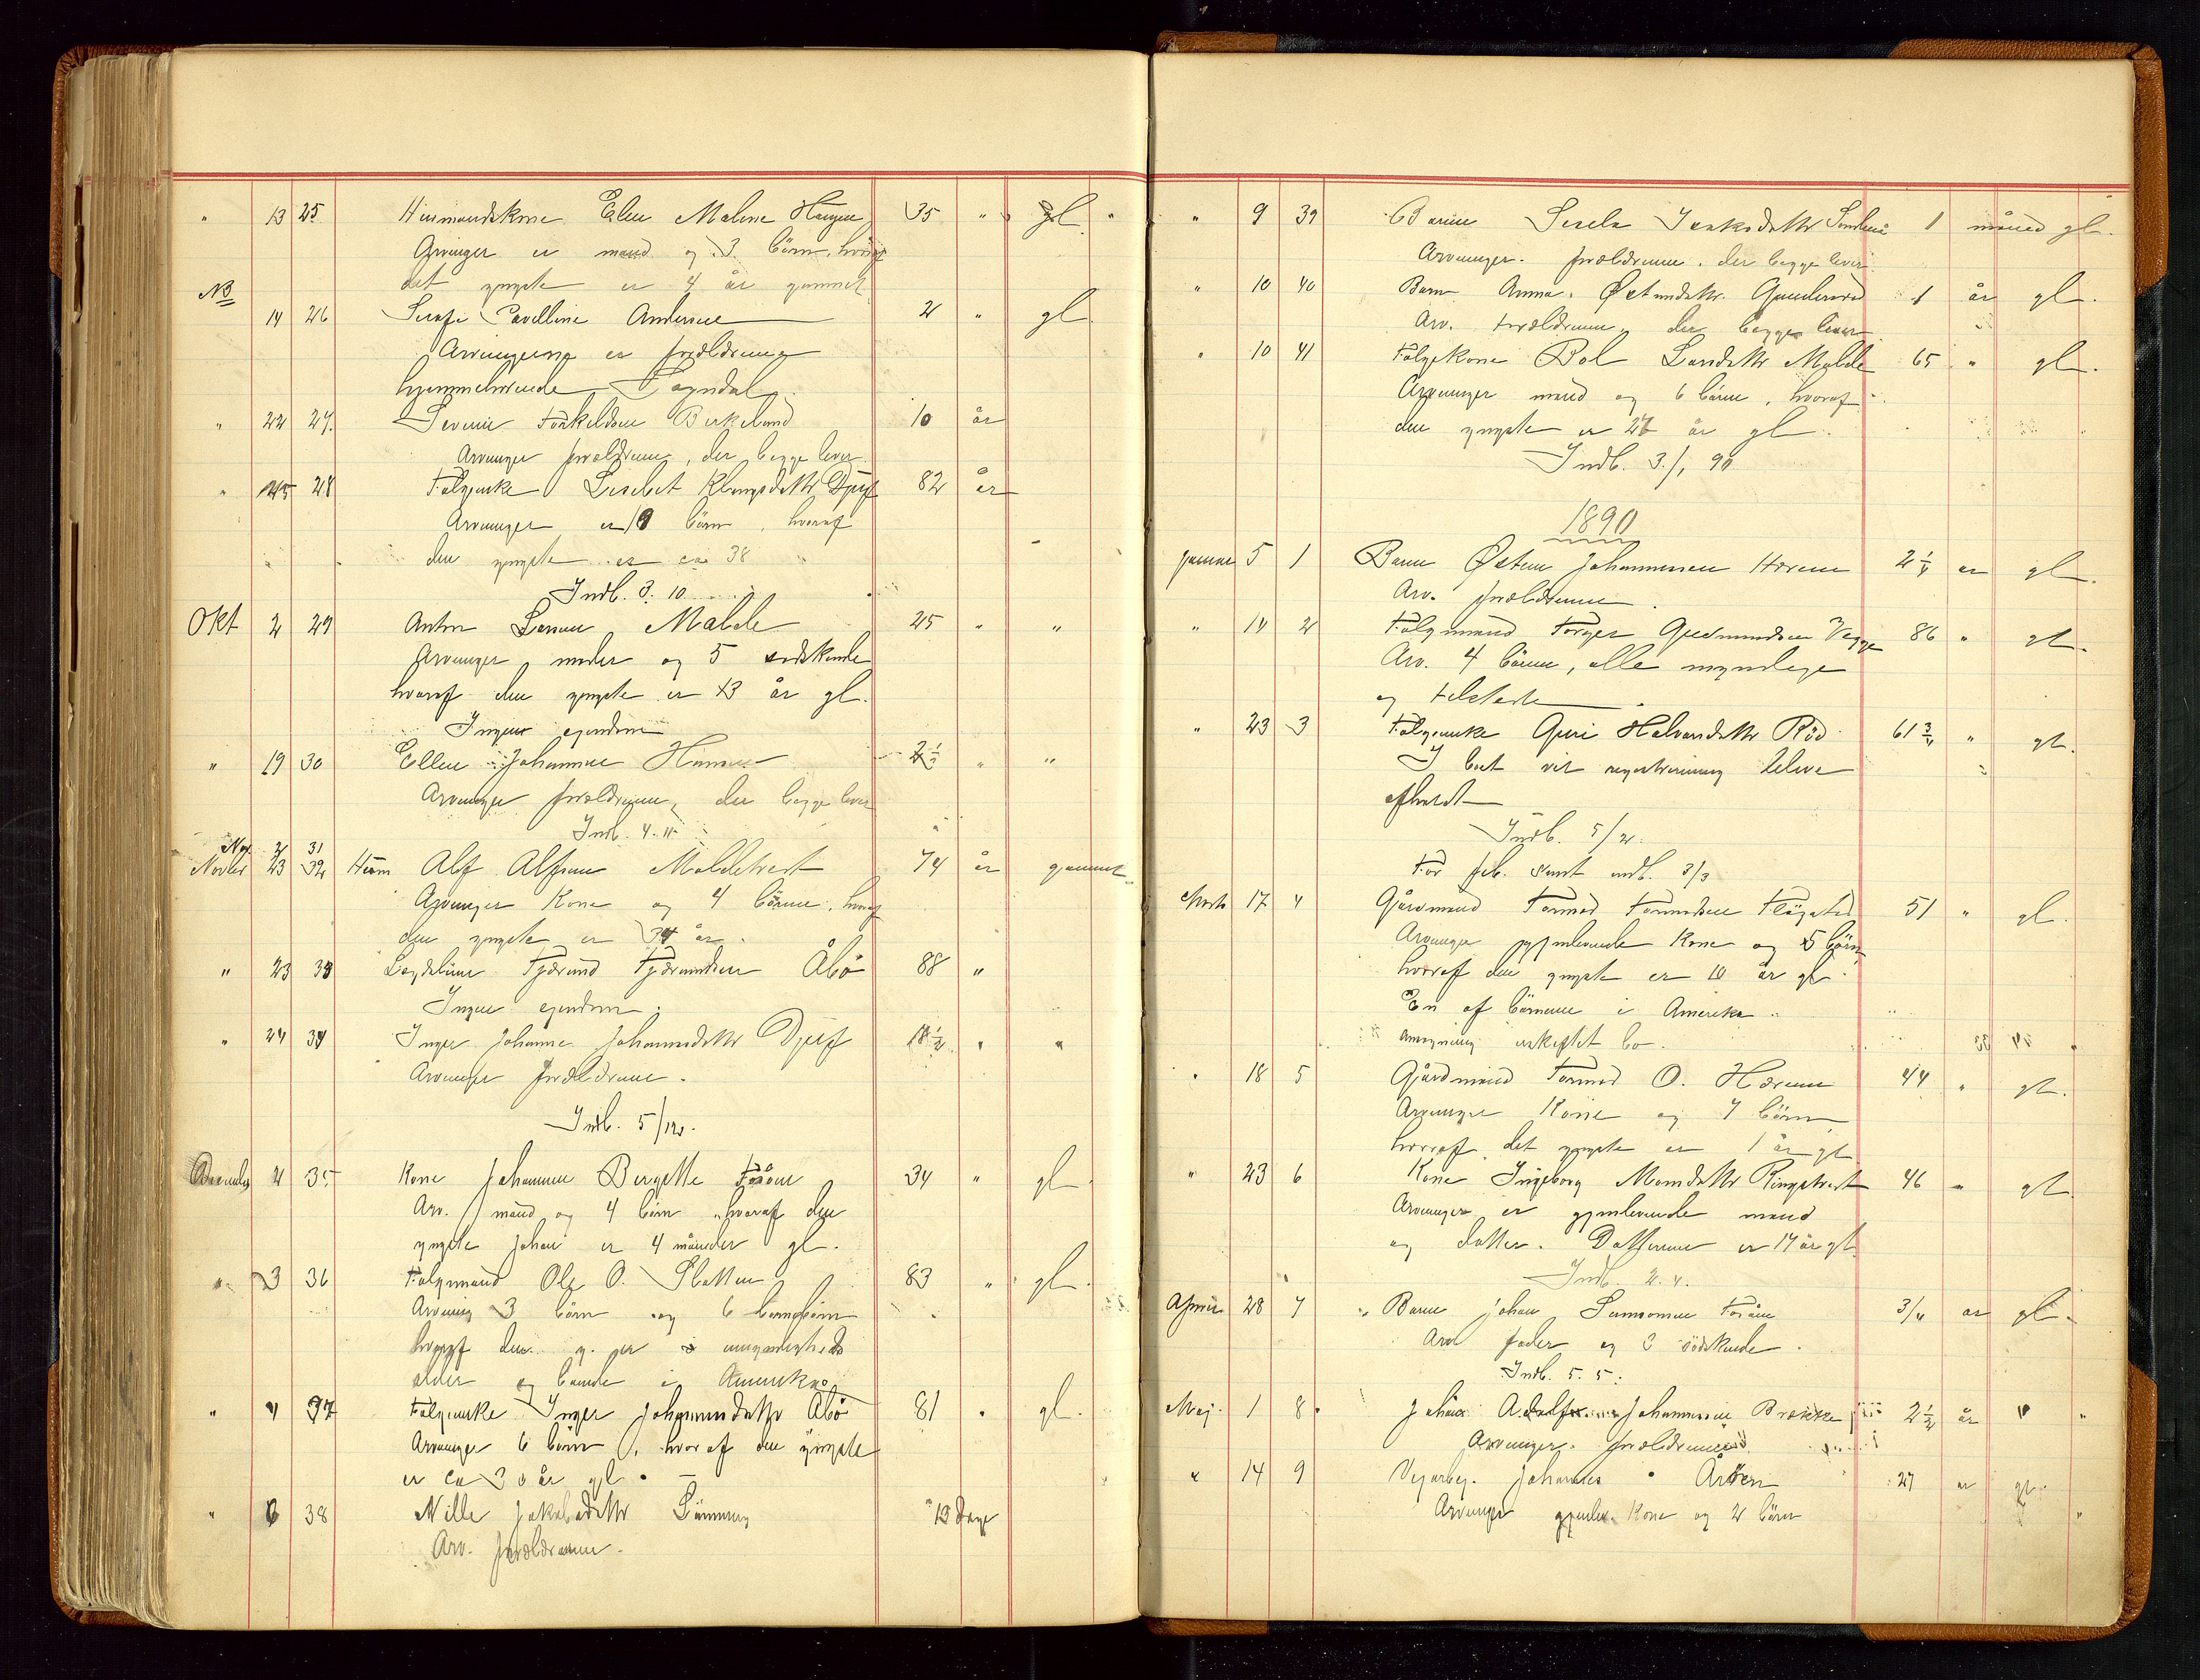 " 13 25 Husmandskone Elen Maline Haugen 35 " gl "
Arvinger er mand og 3 börn, hvoraf
det yngste er 4 år gammel
NB
14 26 Serafi Pavelline Andersen 2 " gl.
Arvingerne er forældrene
hjemmehörende Sogndal.
" 22 27. Severin Torkeldsen Birkeland 10 år
Arvinger forældrene, der begge lever.
" 25 28 Fölgenke Lisebet Klungsdattr Djuf 82 år
Arvinger er 10 börn, hvoraf
den yngste er ca 38
Indb. 3. 10
Okt 2 29 Anton Larsen Malde 25 " "
Arvinger moder og 5 södskende
hvoraf den yngste er 13 år gl.
Ingen ejendom
" 19 30 Ellen Johannes 2 1/2 " "
Arvinger forældrene, der begge lever
Indb. 4. 11
Nov. 2 31
Novbr 23 32 Husm Alf Alfsen Maldetveit 74 år gammel
Arvinger Kone og 4 börn, hvoraf
den yngste er 34 år.
" 23 33 Lægdslem Tjærand Tjærandsen Åbö 88 "
Ingen ejendom.
" 24 34 Inger Johanne Johannesdattr Djuf 18 1/2 " "
Arvinger forældrene.
Indb. 5/12.
December 2 35 Kone Johanne Bergitte Foråen 34 " gl.
Arv. mand og 4 börn, hvoraf den
yngste Johan er 4 måneder gl.
" 3 36 Fölgemand Ole O. Sletten 83 " gl.
Arving 3 börn og 6 barnebörn
hvoraf den y. er i umyndigheds
alder og boende i Amerika
" 4 37 Fölgenke Inger Johannesdattr Åbö 81 " gl.
Arvinger 6 börn, hvoraf den yngste
er ca 30 år gl.
" 6 38 Nille Jakobsdattr 13 Dage
Arv. forældrene.
" 9 39 Barnet Sisela 1 måned gl.
Arvinger. forældrene, der begge lever.
" 10 40 Barn Anna Østensdattr. 1 år gl.
Arv. forældrene, der begge lever
" 10 41 Fölgekone Bol Larsdattr Malde 65 " gl.
Arvinger mand og 6 börn, hvoraf
den yngste er 27 år gl.
Indb. 3/1 90
1890
Januar 5 1 Barn Østen Johannessen 2 1/4 år gl.
Arv. forældrene.
" 14 2 Fölgemand Torger Gudmundsen Vegge 86 " gl.
Arv. 4 börn, alle myndige
og tilstede.
" 23 3 Fölgenke Guri Halvorsdattr Röd 61 3/4 " gl.
I boet vil registrering blive
afholdt
Indb. 5/2.
For feb. sendt indb. 3/3
Marts 17 4 Gårdmand Tormod Tormodsen Flögstad 51 " gl.
Arvinger gjenlevende Kone og 5 börn
hvoraf den yngste er 10 år gl.
En af börnene i Amerika.
uskiftet bo.
" 18 5 Gårdmand Tormod O. 44 " gl.
Arvinger Kone og 7 börn
hvoraf det yngste er 1 år gl
" 23 6 Kone Ingeborg Monsdattr Ringstveit 46 " gl.
Arvinger er gjenlevende mand
og datter. Datteren er 14 år gl.
Indb. 2. 4.
April 28 7 Barn Johan Samsonsen Foråen 3/4 år gl.
Arv fader og 3 södskende.
Indb. 5. 5.
Maj. 1 8. Johan Adolf Johannessen Brække 2 1/2 år " "
Arvinger. forældrene
" 14 9 Vejarbej. Johannes Årsten 27 år gl.
Arvinger gjenlev. Kone og 2 börn